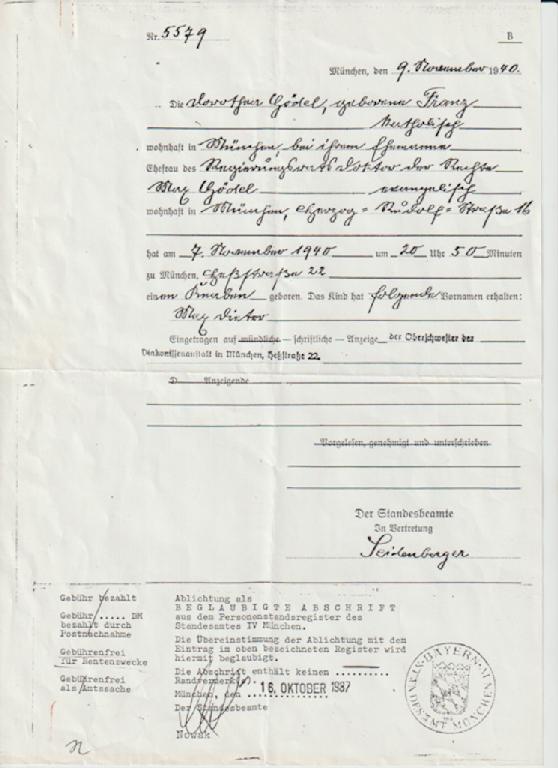 Nr. 5579
B
München, den 9. November 1940.
Die Dorothea Gödel, geborene Franz
katholisch
wohnhaft in München, bei ihrem Ehemanne
Ehefrau des Regierungsrats Doktor der Rechte
Max Gödel evangelisch
wohnhaft in München, Herzog-Rudolf-Straße 16
hat am 7. November 1940 um 20 Uhr 50 Minuten
zu München, Heßstraße 22
einen Knaben geboren. Das Kind hat folgende Vornamen erhalten:
Max Dieter
Eingetragen auf mündliche – schriftliche – Anzeige der Oberschwester der
Diakonissenanstalt in München, Heßstraße 22.
D Anzeigende
Vorgelesen, genehmigt und unterschrieben
Der Standesbeamte
In Vertretung
Seidenberger
Gebühr bezahlt
Gebühr ..... DM
bezahlt durch
Postnachnahme
Gebührenfrei
für Rentenzwecke
Gebührenfrei
als Amtssache
Ablichtung als
BEGLAUBIGTE ABSCHRIFT
aus dem Personenstandsregister des
Standesamtes IV München.
Die Übereinstimmung der Ablichtung mit dem
Eintrag im oben bezeichneten Register wird
hiermit beglaubigt.
Die Abschrift enthält keinen ..........
Randvermerk
München, den 16. OKTOBER 1987
Der Standesbeamte
Nowak
BAYERN
STANDESAMT MÜNCHEN